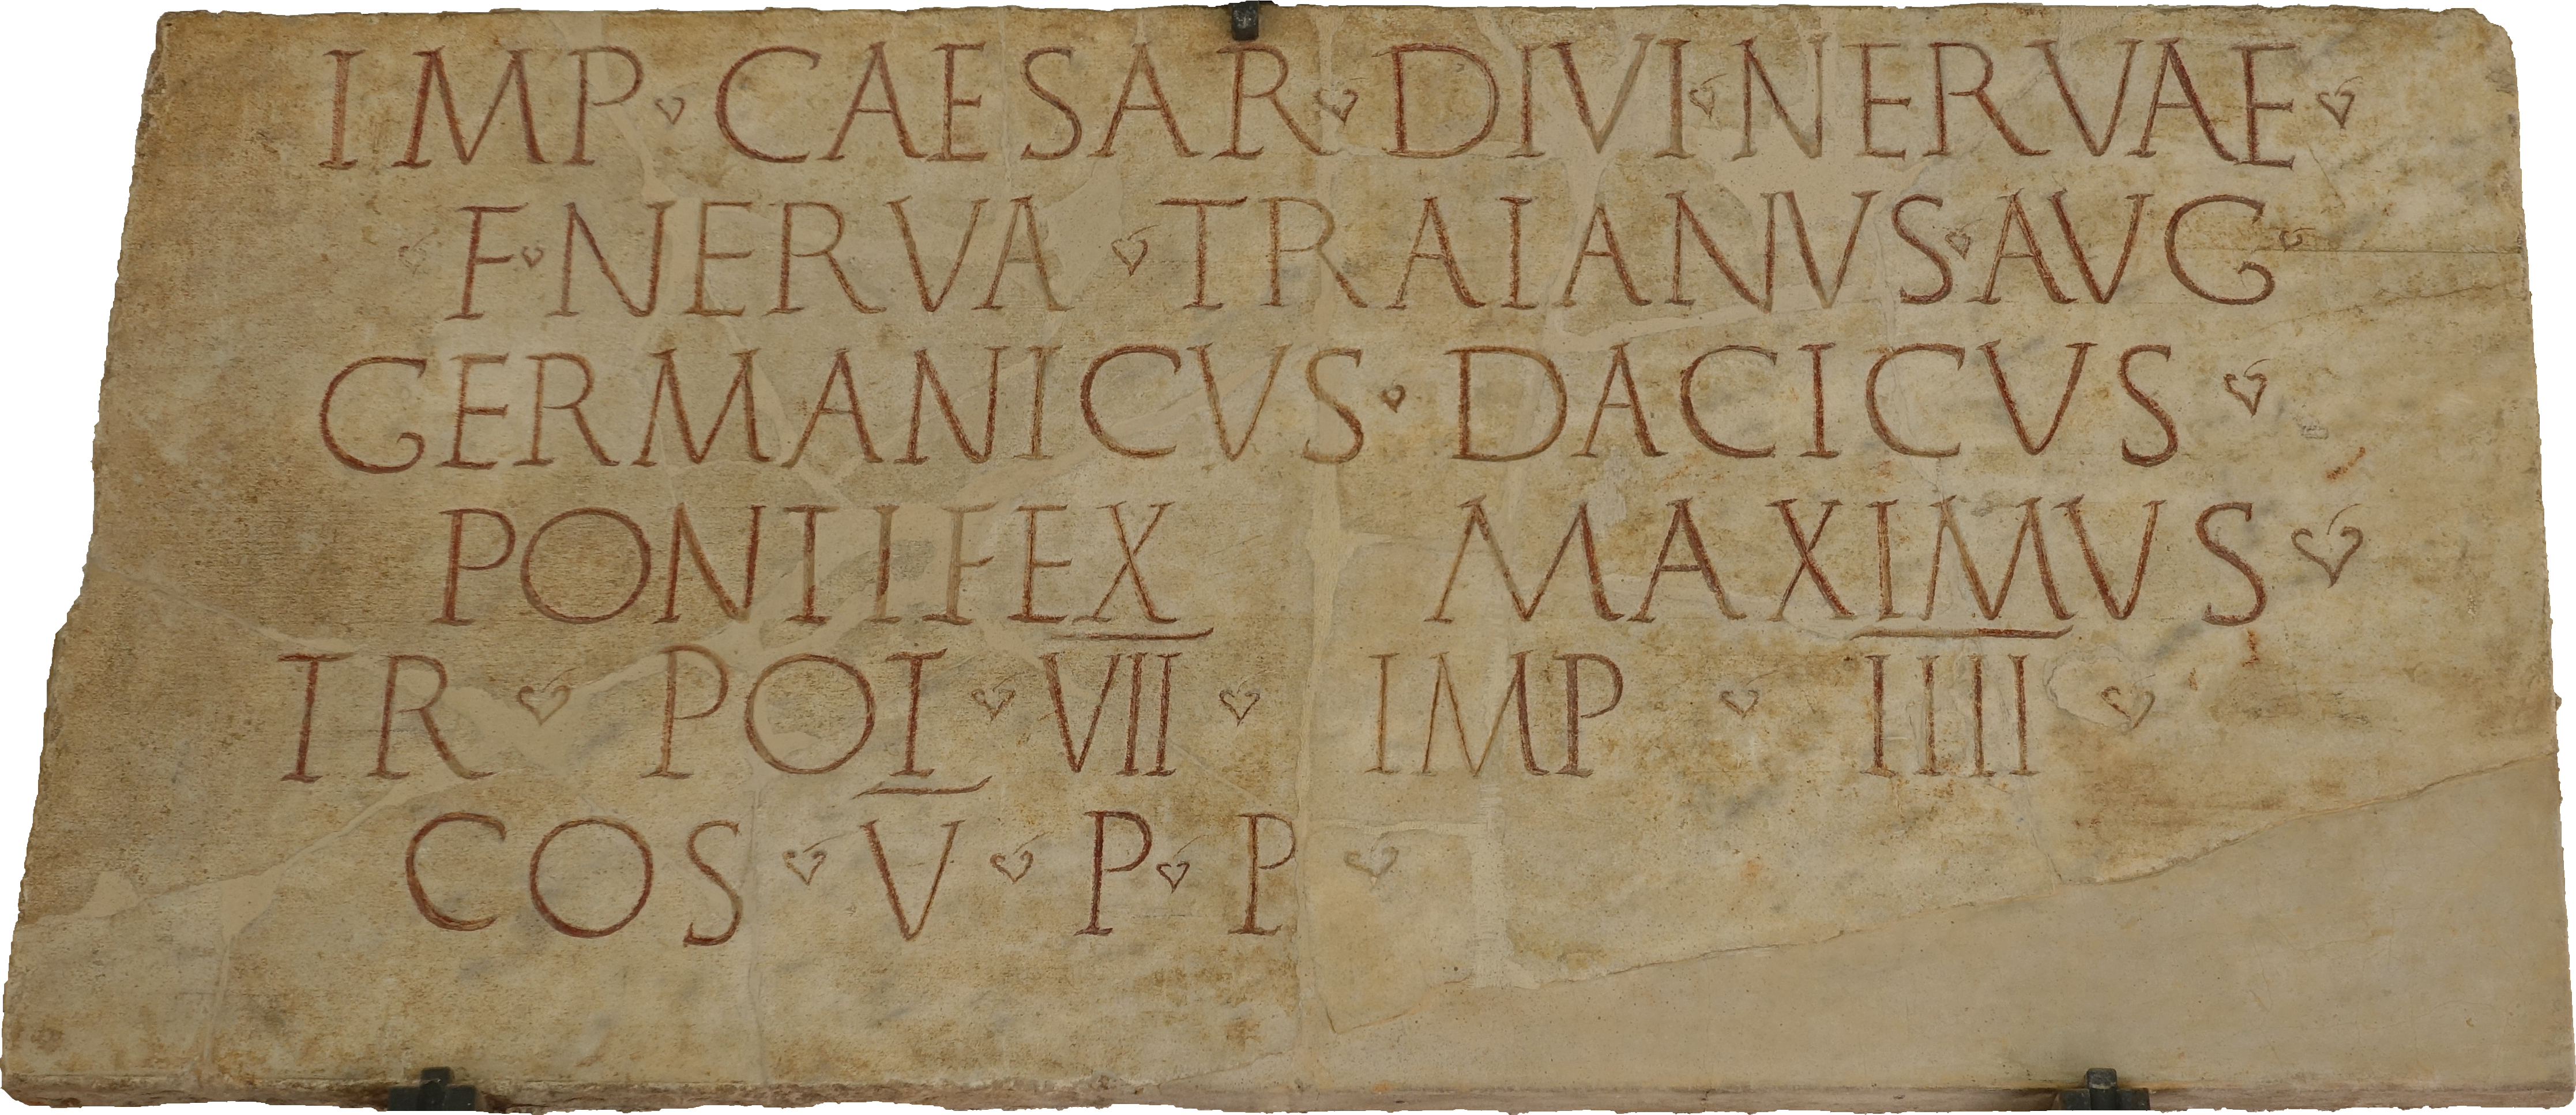 IMP ❦ CAESAR ❦ DIVI ❦ NERVAE ❦
❦ F ❦ NERVA ❦ TRAIANVS ❦ AVG ❦
GERMANICVS ❦ DACICVS ❦
PONTIFEX MAXIMVS ❦
TR ❦ POT ❦ V̅I̅I̅ ❦ IMP ❦ I̅I̅I̅I̅ ❦
COS ❦ V̅ ❦ P ❦ P ❦